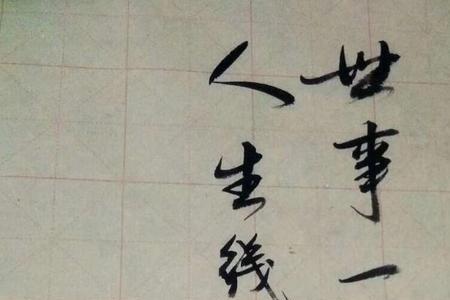 世事一
人生幾